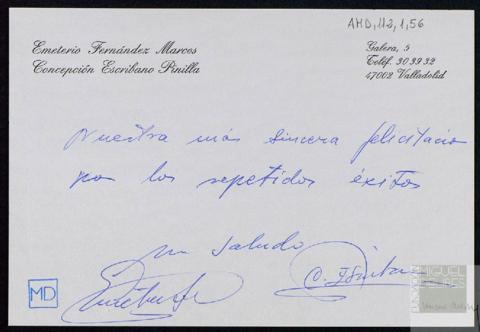 AMD,112,1,56
Emeterio Fernández Marcos
Concepción Escribano Pinilla
Galera, 5
Teléf. 303932
47002 Valladolid
Nuestra más sincera felicitación
por los repetidos éxitos
un saludo
MD
FUNDACIÓN
MIGUEL
DELIBES